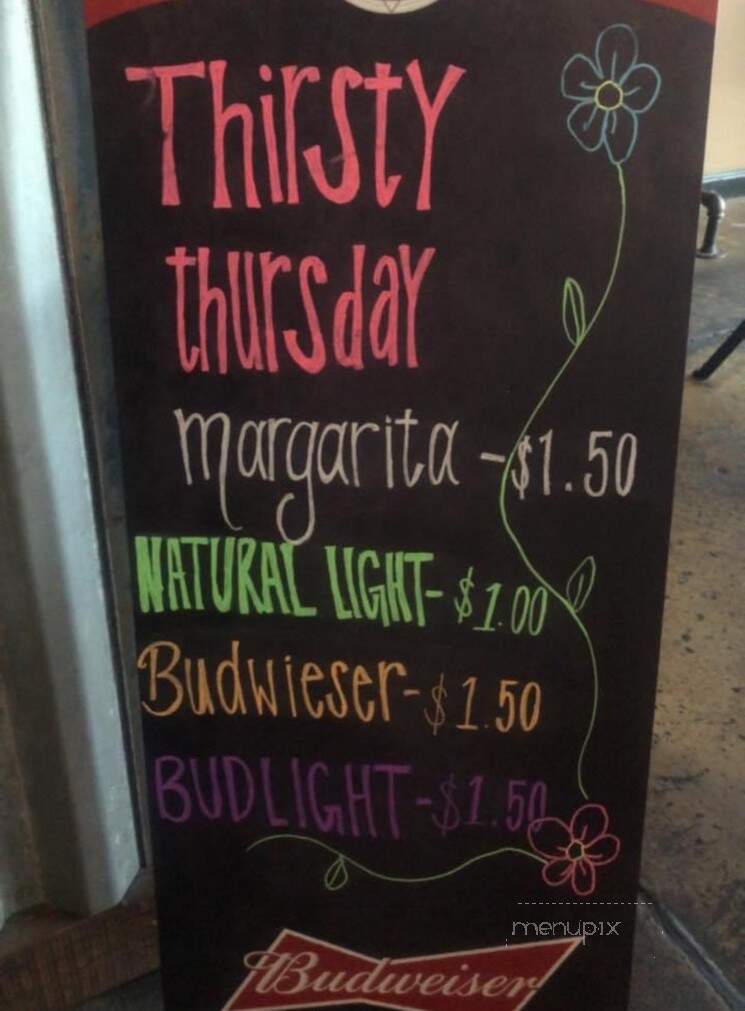 Thirsty
thursday
margarita - $1.50
NATURAL LIGHT- $1.00
Budwieser- $1.50
BUDLIGHT - $1.50
menupix
Budweiser